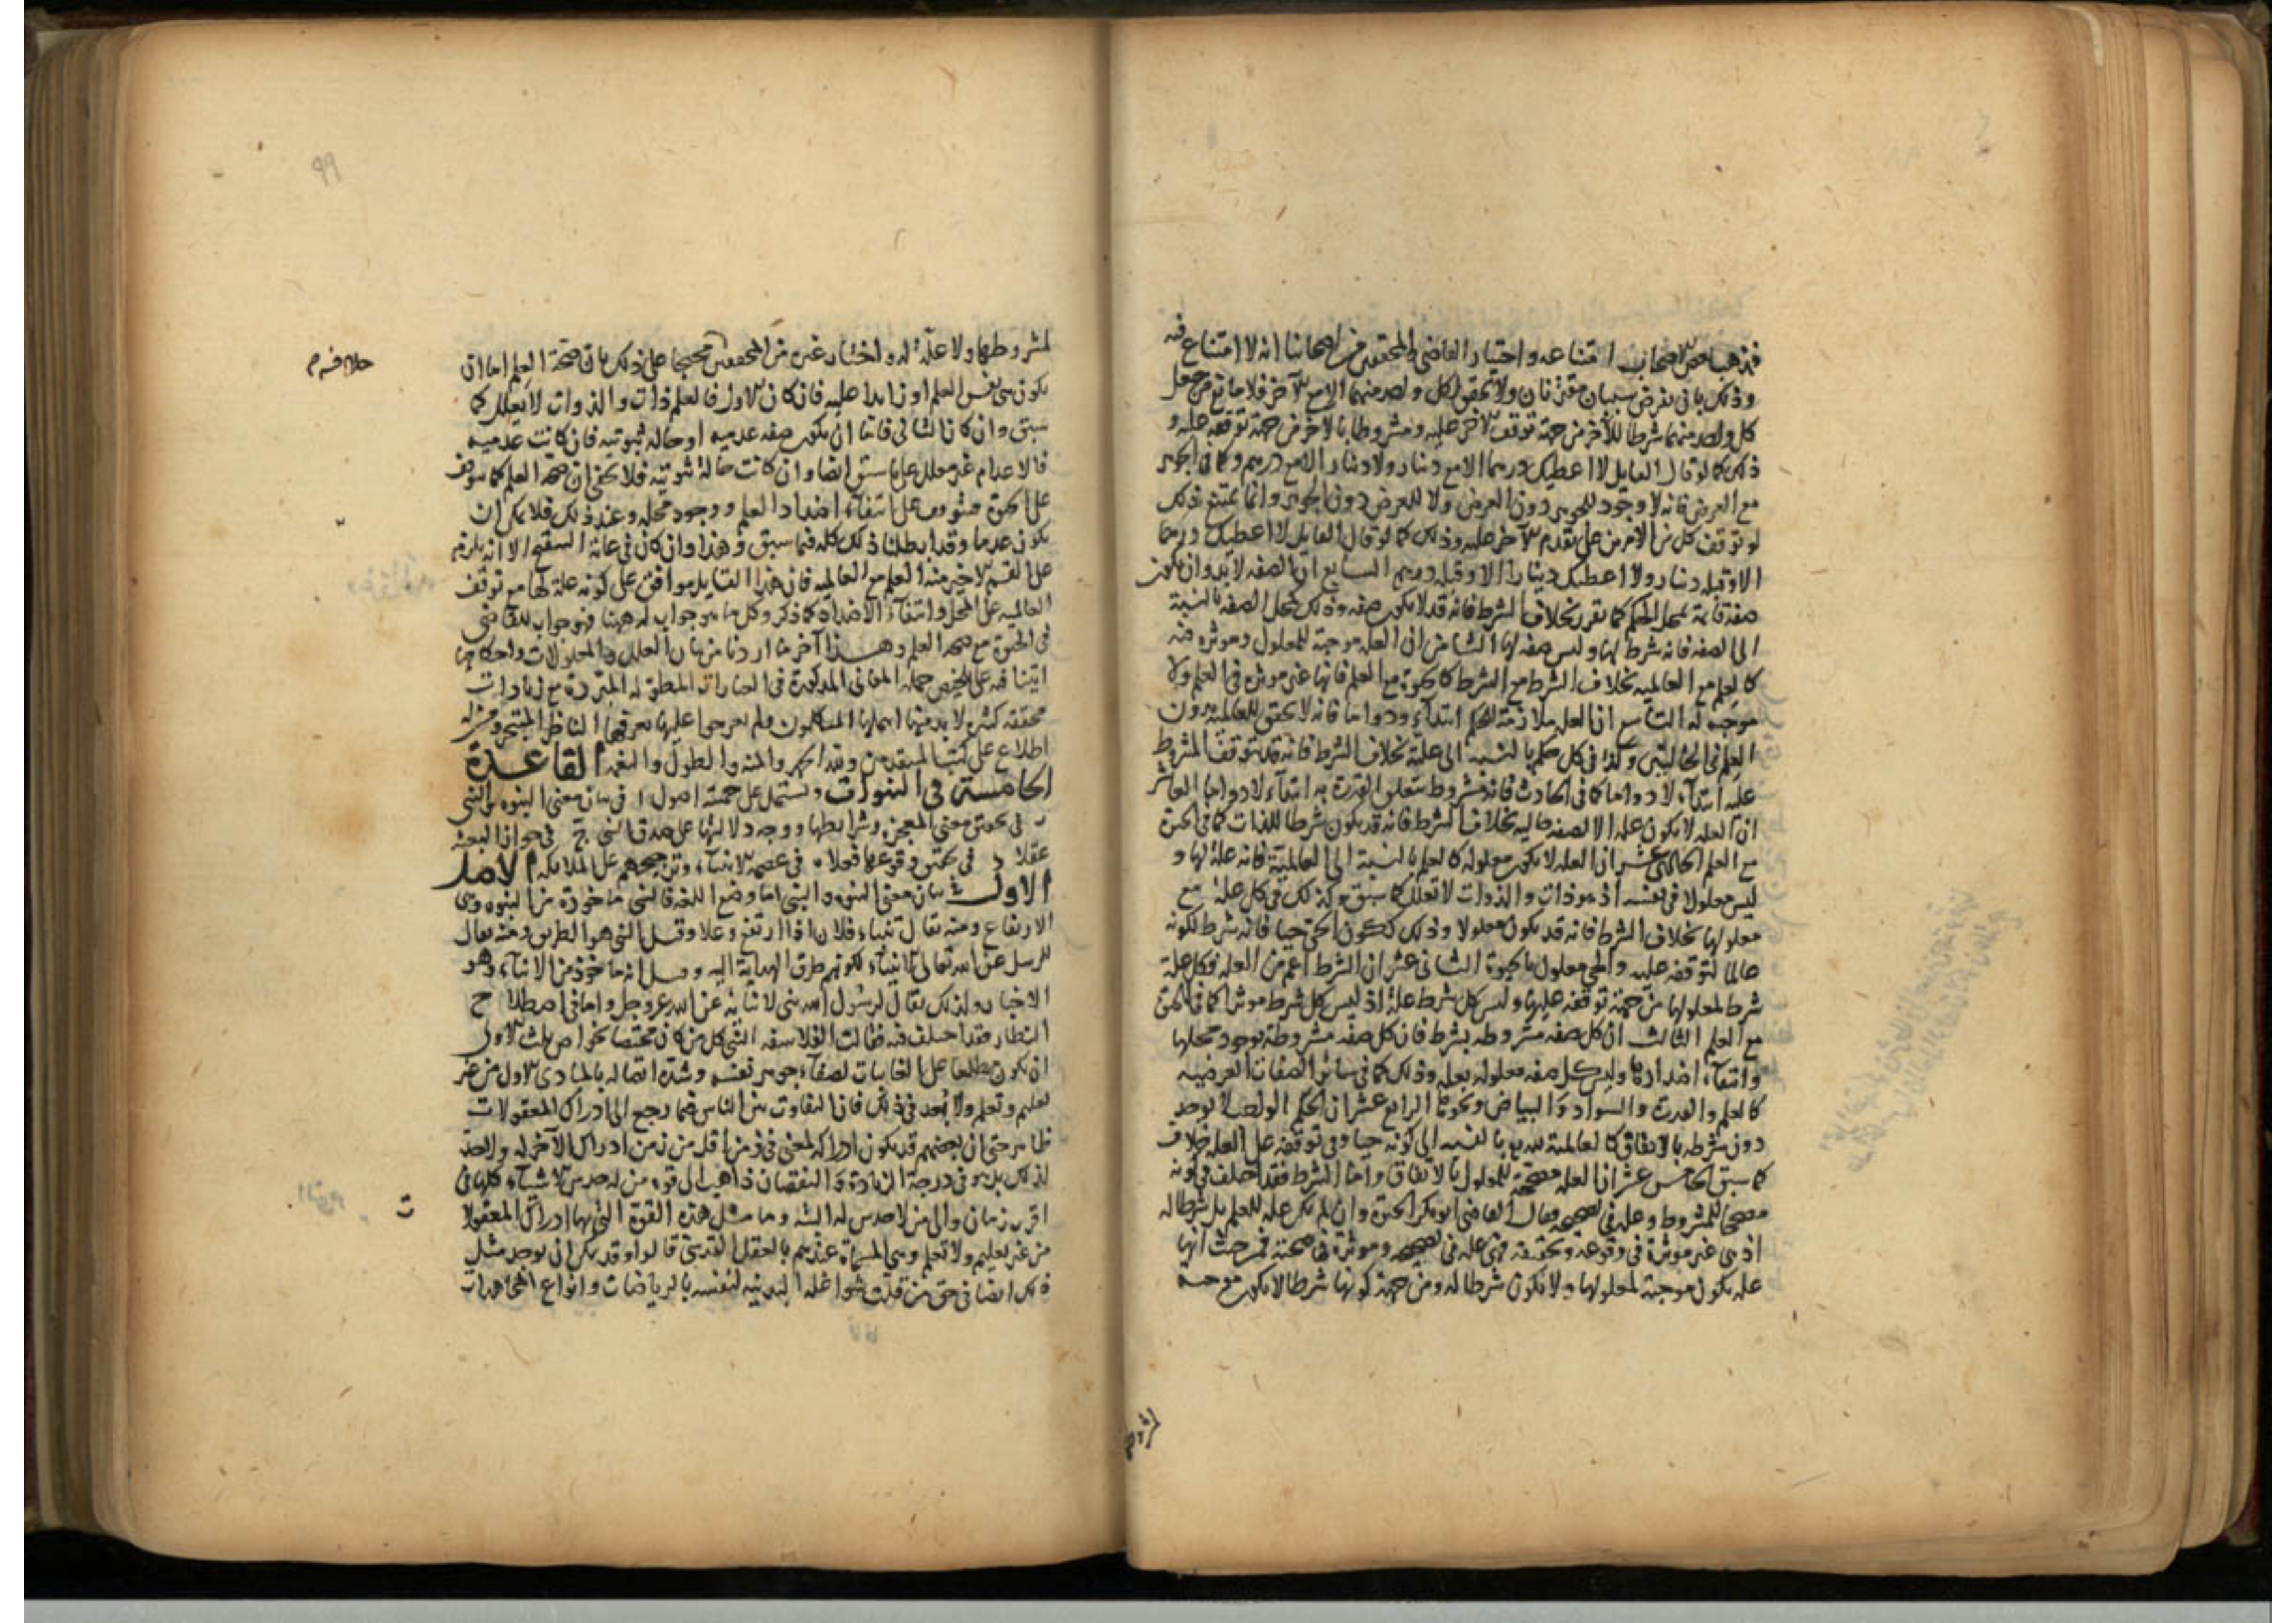 فذهب بعض الاصحاب الى امتناعه واختيار القاضى والمحققين من اصحابنا انه لا امتناع فيه
وذلك بان نفرض شيئان مقترنان ولا تحقق لكل واحد منهما الا مع الآخر فلا مانع من جعل
كل واحد منهما شرطا للآخر من جهة توقف الآخر عليه ومشروطا بالآخر من جهة توقفه عليه و
ذلك كما لو قال القايل لا اعطيك درهما الا مع دينار ولا دينار الا مع درهم وكما فى الجوهر
مع العرض فانه لا وجود للجوهر دون العرض ولا للعرض دون الجوهر وانما يمتنع ذلك
لو توقف كل من الامرين على تقدم الآخر عليه وذلك كما لو قال القايل لا اعطيك درهما
الا وقبله دينار ولا اعطيك دينارا الا وقبله درهم السابع ان الصفه لابد وان تكون
صفة قايمة بمحل الحكم كما تقرر بخلاف الشرط فانه قد لا يكون صفه وذلك كمحل الصفه بالنسبة
الى الصفه فانه شرط لها وليس صفه لها الثامن ان العله موجبة للمعلول ومؤثره فيه
كالعلم مع العالميه بخلاف الشرط مع المشروط كالحيوة مع العلم فانها غير موثره فى العلم ولا
موجبه له التاسع ان العله ملازمة للحكم ابتداء ودواما فانه لا تحقق للعالميه بدون
العلم فى الحالتين وكذا فى كل حكم بالنسبه الى علية بخلاف الشرط فانه قد يتوقف المشروط
عليه ابتداء لا دواما كما فى الحادث فانه مشروط بتعلق القدرة به ابتداء لا دواما العاشر
ان العله لا يكون عله الا لصفه حاليه بخلاف الشرط فانه قد يكون شرطا للذات كما فى الحيوة
مع العلم الحادى عشر ان العله لا يكون معلوله كالعلم بالنسبة الى العالمية فانه علة لها و
ليس معلولا فى نفسه اذ هو ذات والذوات لا تعلل كما سبق وكذلك فى كل علة مع
معلولها بخلاف الشرط فانه قد يكون معلولا وذلك ككون الحى حيا فانه شرط لكونه
عالما لتوقفه عليه والحى معلول بالحيوة الثانى عشر ان الشرط اعم من العله فكل علة
شرط لمعلولها من جهة توقفه عليها وليس كل شرط علة اذ ليس كل شرط موثرا كما فى الحيوة
مع العلم الثالث ان كل صفه مشروطه بشرط فان كل صفه مشروطة بوجود محلها
وانتفاء اضدادها وليس كل صفه معلوله بعله وذلك كما فى سائر الصفات العرضيه
كالعلم والقدرة والسواد والبياض ونحوها الرابع عشر ان الحكم الواحد لا يوجد
دون شرطه بالاتفاق كالعالمية بالنسبه الى كونه حيا وفى توقفه على العله خلاف
كما سبق الخامس عشر ان العله مصححة للمعلول بالاتفاق واما الشرط فقد اختلف فى كونه
مصححا للمشروط وعله فى تصحيحه فقال القاضى ابو بكر الحيوة وان لم يكن عله للعلم بل شرطا له
اذ هى غير موثرة فى وقوعه وتحققه فهى عله فى تصحيحه وموثرة فى صحته فمن حيث انها
عله يكون موجبة لمعلولها ولا تكون شرطا له ومن جهة كونها شرطا لا يكون موجبه
٩٩
خلافه م
لمشروطها ولا علة له واختيار غيره من المحققين محتجا على ذلك بان صحة العلم اما ان
يكون هى نفس العلم او زايدا عليه فان كان الاول فالعلم ذات والذوات لا يعلل كما
سبق وان كان الثانى فاما ان يكون صفه عدميه او حاله ثبوتيه فان كانت عدميه
فالاعدام غير معلل على ما سبق ايضا وان كانت حالة ثبوتيه فلا يخفى ان صحة العلم كما يتوقف
على الحيوة متوقف على انتفاء اضداد العلم ووجود محله وعند ذلك فلا يمكن ان
يكون عدما وقد ابطلنا ذلك كله فيما سبق وهذا وان كان فى غاية السقوط الا انه يلزم
على القسم الاخير منه العلم مع العالميه فان هذا القايل موافق على كونه علة لها مع توقف
العالميه على المحل وانتفاء الاضداد كما ذكر وكل ما هو جواب له ههنا فهو جواب للقاضى
فى الحيوة مع صحة العلم وهذا آخر ما اردنا من بيان العلل والمعلولات واحكامها
اتينا فيه على تلخيص جمله المعانى المذكورة فى العبارات المطوله المبتردة مع زيادات
محققه كثيره لابد منها اهملها المتكلمون ولم يعرجوا عليها يعرفها الناظر المتبحر ومن له
اطلاع على كتب المتقدمين ولله الحمد والمنه والطول والنعمه القاعدة
الخامسة فى النبوات وتشتمل على خمسة اصول ا فى بيان معنى النبوه والنبى
ب فى تحقيق معنى المعجزه وشرايطها ووجه دلالتها على صدق النبى ج فى جواز البعثه
عقلا د فى تحقيق وقوعها فعلا ه فى عصمه الانبياء وترجيحهم على الملائكه الاصل
الاول فى بيان معنى النبوه والنبى اما وضع اللغه فالنبى ماخوذة من النبوه وهى
الارتفاع ومنه يقال تنباء فلان اذا ارتفع وعلا وقيل النبى هو الطريق ومنه يقال
للرسل عن الله تعالى الانبياء لكونهم طرق الهداية اليه وقيل انه ماخوذ من الانباء وهو
الاخبار ولذلك يقال لرسول الله نبى لانبائه عن الله عز وجل واما فى اصطلاح
النظار فقد اختلف فيه فقالت الفلاسفه النبى كل من كان مختصا بخواص ثلث الاول
ان يكون مطلعا على الغايبات لصفاء جوهر نفسه وشدة اتصاله بالمبادى الاول من غير
تعليم وتعلم ولا بعد فى ذلك فان التفاوت بين الناس فيما رجع الى ادراك المعقولات
ظاهر حتى ان بعضهم قد يكون ادراكه لمعنى فى زمن اقل من زمن ادراك الآخر له والحد
لذلك بل هو فى درجة الزيادة والنقصان ذاهب الى قوه من له حدس الاشياء كلها فى
اقرب زمان والى من لا حدس له البته وما مثل هذه القوة التى بها ادراك المعقولا
ت
من غير تعليم ولا تعلم وهى المسماة عندهم بالعقل القدسى قالوا وقد يمكن ان يوجد مثل
ذلك ايضا فى حق من قلت شواغله البدنيه لنفسه بالرياضات وانواع المجاهدات